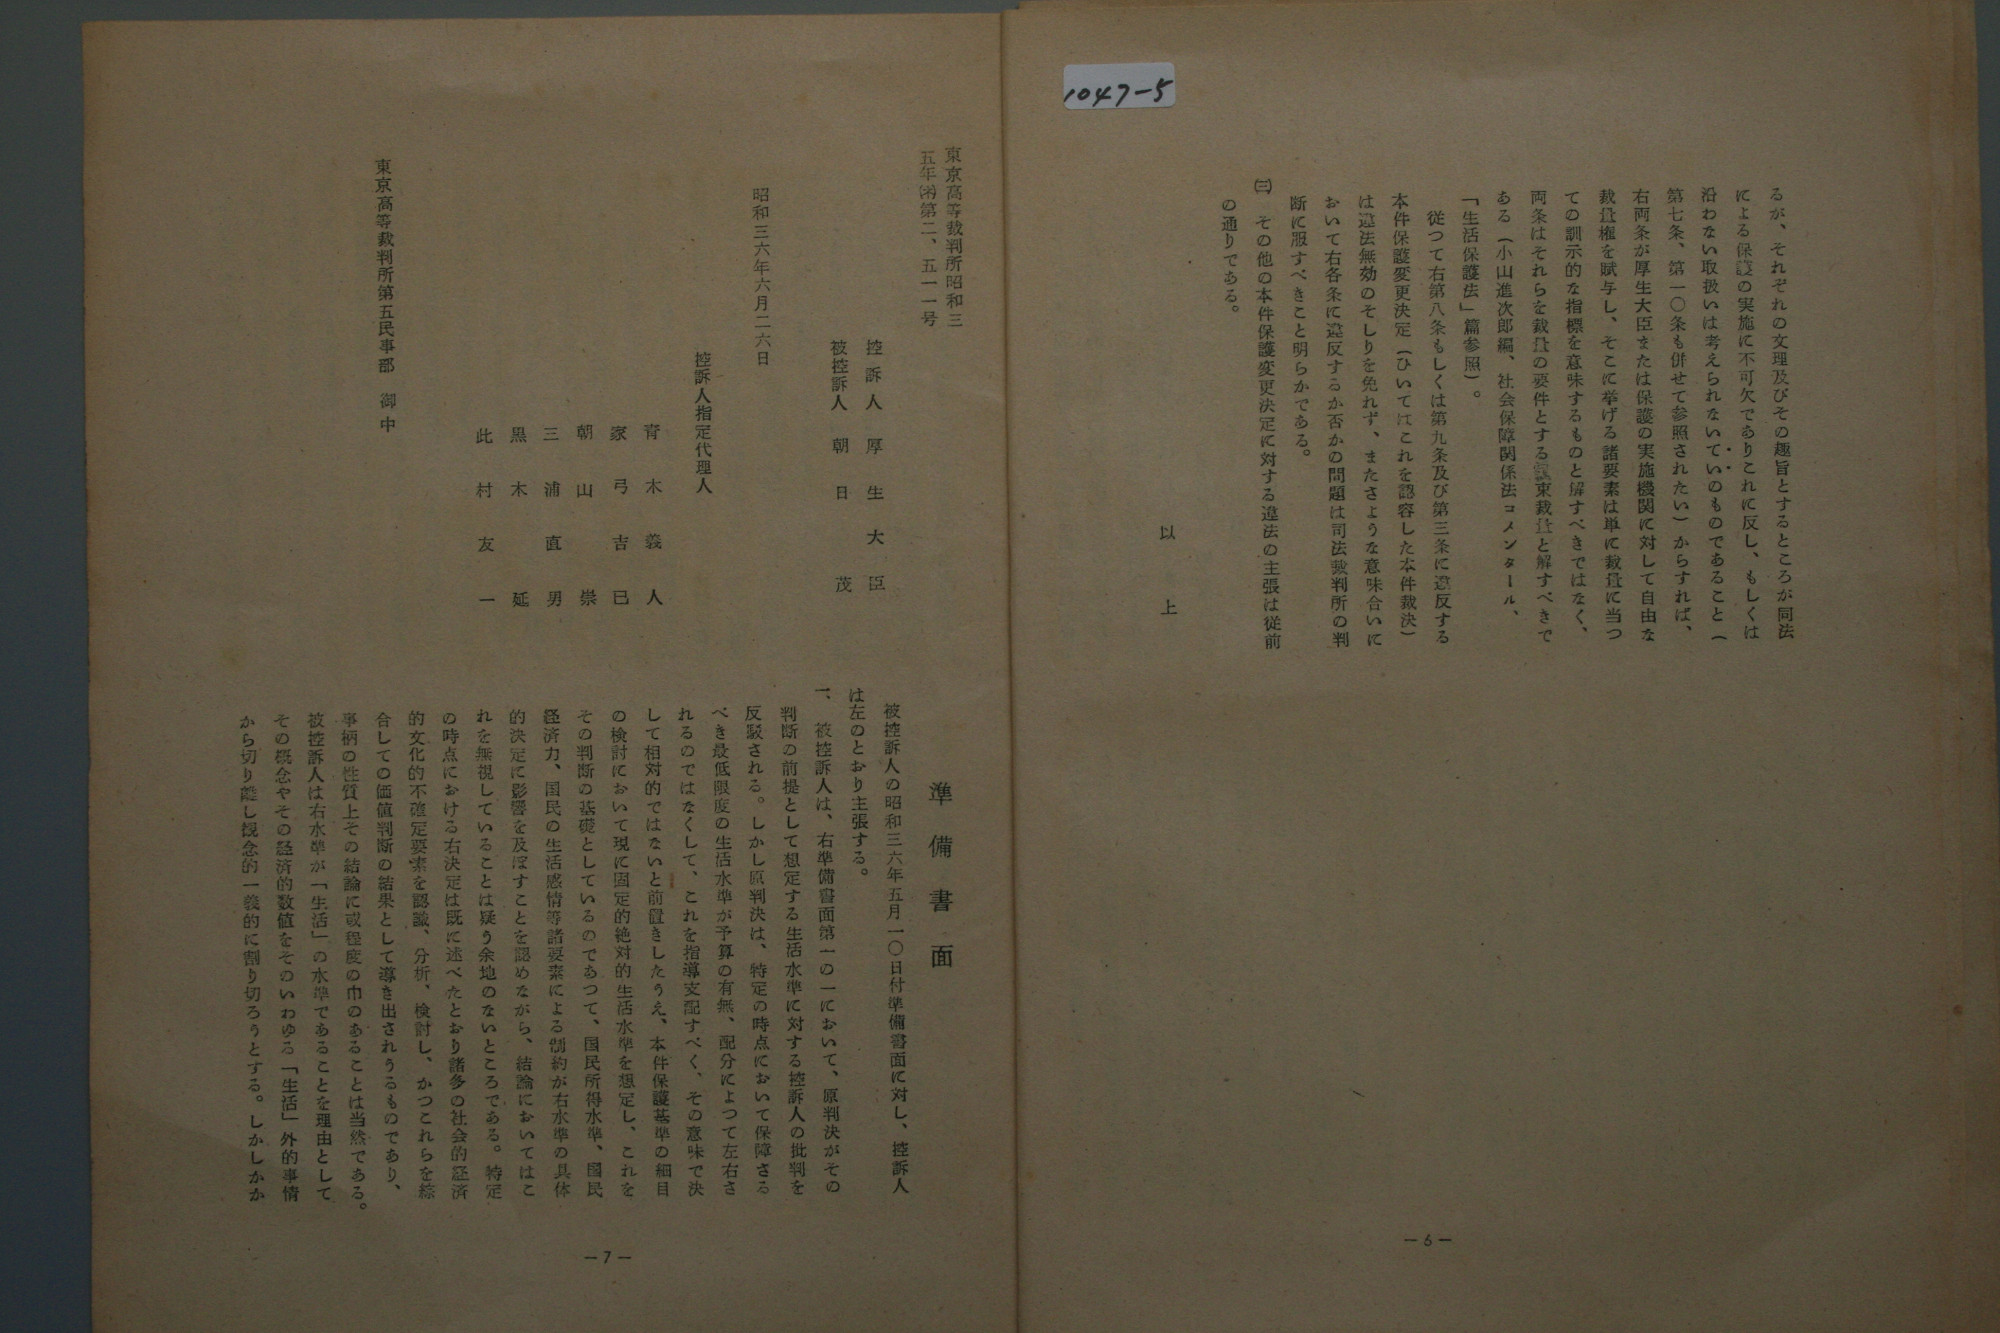 1047-5
るが、それぞれの文理及びその趣旨とするところが同法
による保護の実施に不可欠でありこれに反し、もしくは
沿わない取扱いは考えられないていのものであること（
第七条、第一〇条も併せて参照されたい）からすれば、
右両条が厚生大臣または保護の実施機関に対して自由な
裁量権を賦与し、そこに挙げる諸要素は単に裁量に当つ
ての訓示的な指標を意味するものと解すべきではなく、
両条はそれらを裁量の要件とする覊束裁量と解すべきで
ある（小山進次郎編、社会保障関係法コメンタール、
「生活保護法」篇参照）。
従つて右第八条もしくは第九条及び第三条に違反する
本件保護変更決定（ひいてはこれを認容した本件裁決）
は違法無効のそしりを免れず、またさような意味合いに
おいて右各条に違反するか否かの問題は司法裁判所の判
断に服すべきこと明らかである。
㈢ その他の本件保護変更決定に対する違法の主張は従前
の通りである。
以上
―6―
東京高等裁判所昭和三
五年(ネ)第二、五一一号
控訴人 厚生大臣
被控訴人 朝日茂
昭和三六年六月二六日
控訴人指定代理人
青木義人
家弓吉巳
朝山崇
三浦直男
黒木延
此村友一
東京高等裁判所第五民事部 御中
準備書面
被控訴人の昭和三六年五月一〇日付準備書面に対し、控訴人
は左のとおり主張する。
一、被控訴人は、右準備書面第一の一において、原判決がその
判断の前提として想定する生活水準に対する控訴人の批判を
反駁される。しかし原判決は、特定の時点において保障さる
べき最低限度の生活水準が予算の有無、配分によつて左右さ
れるのではなくして、これを指導支配すべく、その意味で決
して相対的ではないと前置きしたうえ、本件保護基準の細目
の検討において現に固定的絶対的生活水準を想定し、これを
その判断の基礎としているのであつて、国民所得水準、国民
経済力、国民の生活感情等諸要素による制約が右水準の具体
的決定に影響を及ぼすことを認めながら、結論においてはこ
れを無視していることは疑う余地のないところである。特定
の時点における右決定は既に述べたとおり諸多の社会的経済
的文化的不確定要素を認識、分析、検討し、かつこれらを綜
合しての価値判断の結果として導き出されうるものであり、
事柄の性質上その結論に或程度の巾のあることは当然である。
被控訴人は右水準が「生活」の水準であることを理由として
その概念やその経済的数値をそのいわゆる「生活」外的事情
から切り離し観念的一義的に割り切ろうとする。しかしかか
―7―